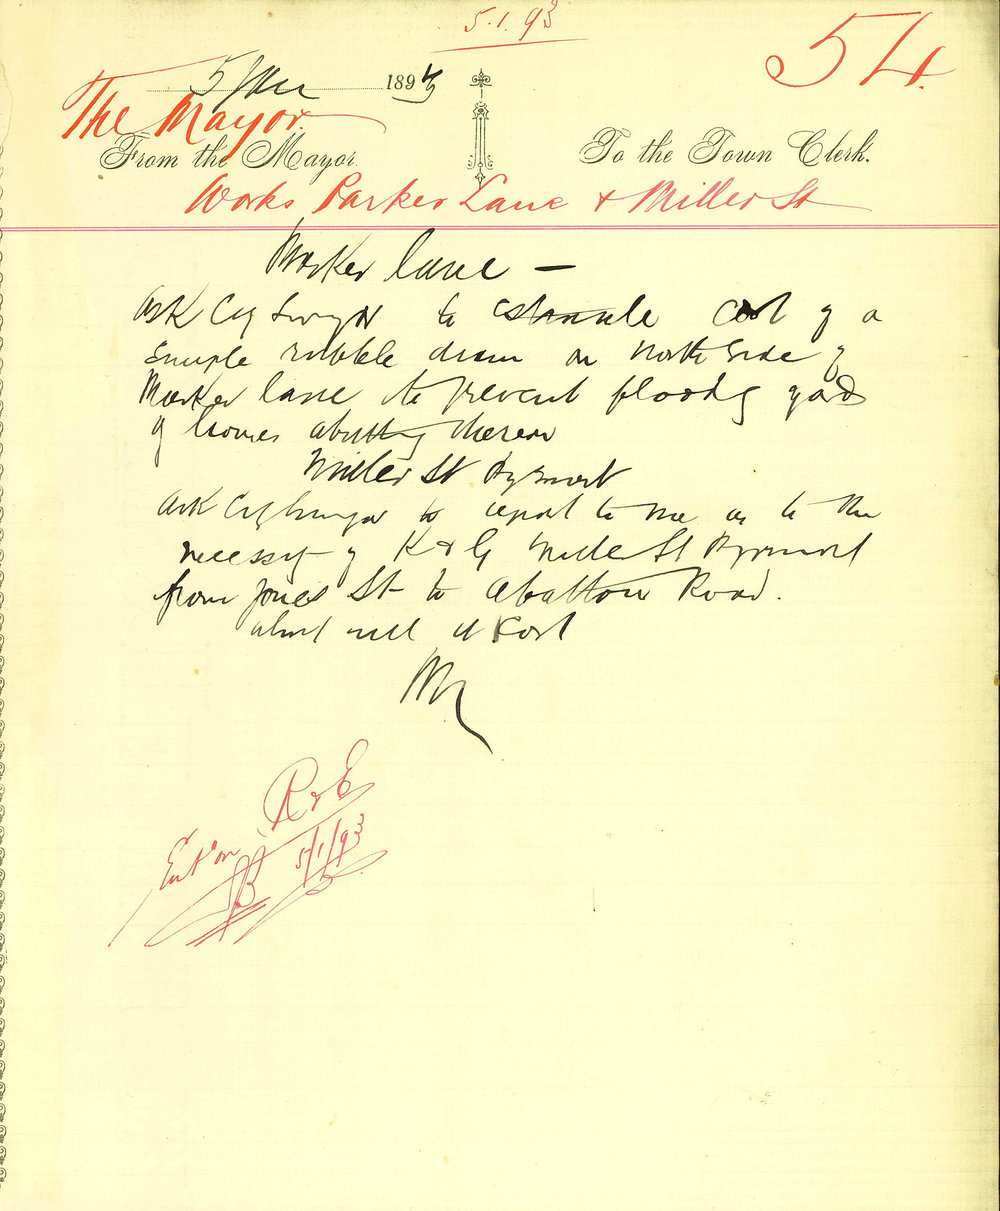 5.1.93
54.
5 Jan 1893
The Mayor.
From the Mayor. To the Town Clerk.
Works Parker Lane & Miller St
Parker Lane —
Ask City Surveyor to estimate cost of a
simple rubble drain on North Side of
Parker Lane to prevent flooding yards
of houses abutting thereon
Miller St Pyrmont
Ask City Surveyor to report to me as to the
necessity of K & G Miller St Pyrmont
from Jones St to Abattoir Road.
about will it cost
M
R & E
5/1/93